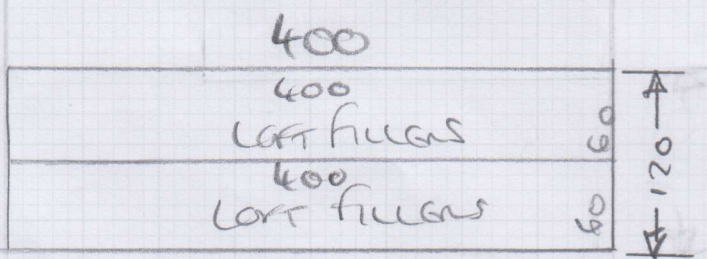 400
400
LOFT FILLERS
60
400
LOFT FILLERS
60
120